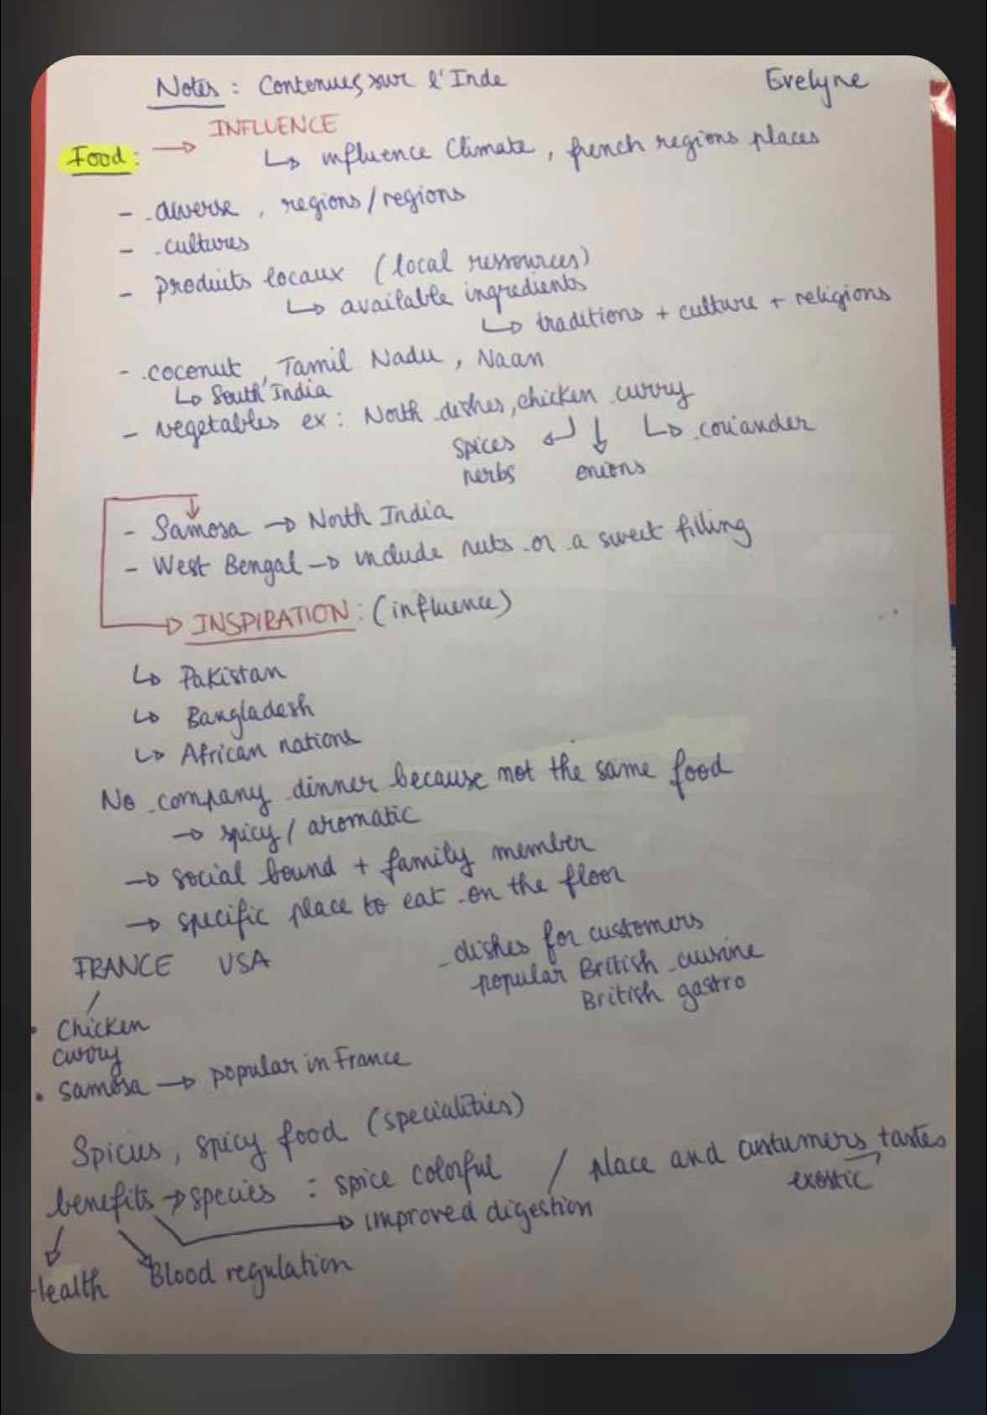 Notes : Contenues sur l'Inde
Evelyne
INFLUENCE
Food : → ↳ influence Climate, french regions places
- diverse, regions/regions
- cultures
- produits locaux (local ressources)
↳ available ingredients
↳ traditions + culture + religions
- coconut, Tamil Nadu, Naan
↳ South India
- vegetables ex : North dishes, chicken curry
spices ↓ ↳ coriander
herbs onions
- Samosa → North India
- West Bengal → include nuts or a sweet filling
→ INSPIRATION : (influence)
↳ Pakistan
↳ Bangladesh
↳ African nations
No company dinner because not the same food
→ spicy / aromatic
→ social bound + family member
→ specific place to eat on the floor
FRANCE USA
- dishes for customers
popular British cuisine
British gastro
• Chicken
curry
• samosa → popular in France
Spicus, spicy food (specialities)
benefits → species : spice colorful / place and custumers tastes
exostic
→ improved digestion
Health Blood regulation